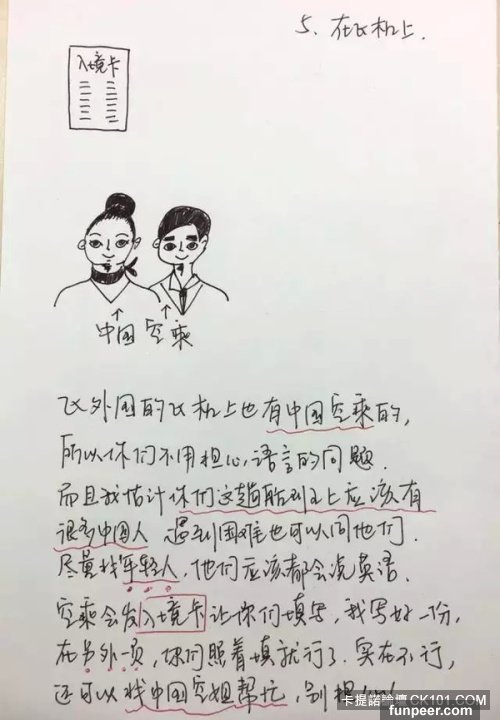 5、在飞机上.
入境卡
中国空乘
飞外国的飞机上也有中国空乘的,
所以你们不用担心语言的问题.
而且我估计你们这趟航班上应该有
很多中国人 遇到困难也可以问他们.
尽量找年轻人,他们应该都会说英语.
空乘会发入境卡让你们填写,我写好一份,
在另外一页,你们照着填就行了.实在不行,
还可以找中国空姐帮忙,别担
卡提諾論壇 CK101.COM
funpeer.com